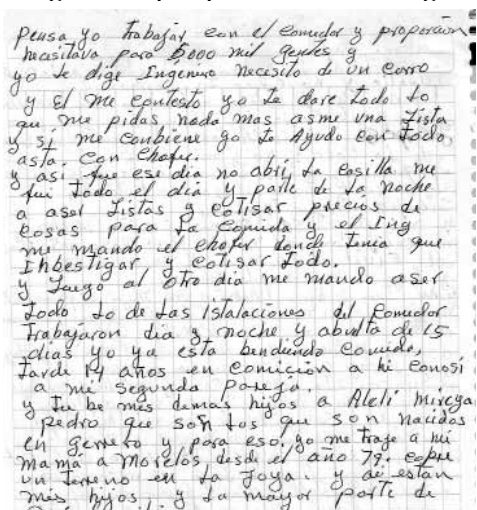 pensa yo trabajar con el comedor y proporción
necesitava para 5,000 mil gentes y
yo le dige Ingeniero necesito de un carro
y El me contesto yo te dare todo lo
que me pidas nada mas asme una Lista
y si me conbiene yo te Ayudo con todo
asta con chofer.
y asi fue ese dia no abri la casilla me
fui todo el dia y parte de la noche
a aser Listas y cotisar precios de
cosas para la comida y el Ing
me mando el chofer donde tenia que
Inbestigar y cotisar todo.
y Luego al otro dia me mando aser
todo lo de las istalaciones del comedor
trabajaron dia y noche y abuelta de 15
dias yo ya esta bendiendo comida,
tarde 14 años en comición a hi conosi
a mi segunda pareja.
y tube mis demas hijos a Aleli mireya
pedro que son los que son nacidos
en gerrero y para eso yo me traje a mi
mamá a Morelos desde el año 79. copre
un terreno en la Joya. y ai estan
mis hijos, y la mayor parte de